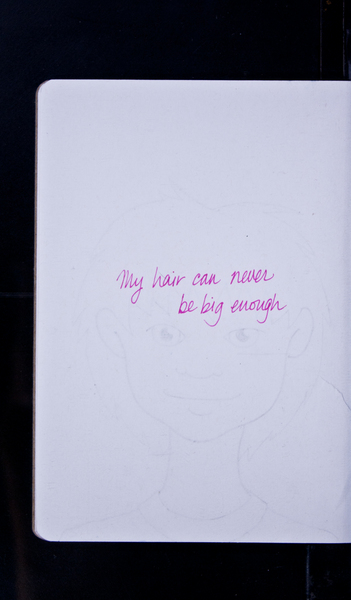 My hair can never
be big enough